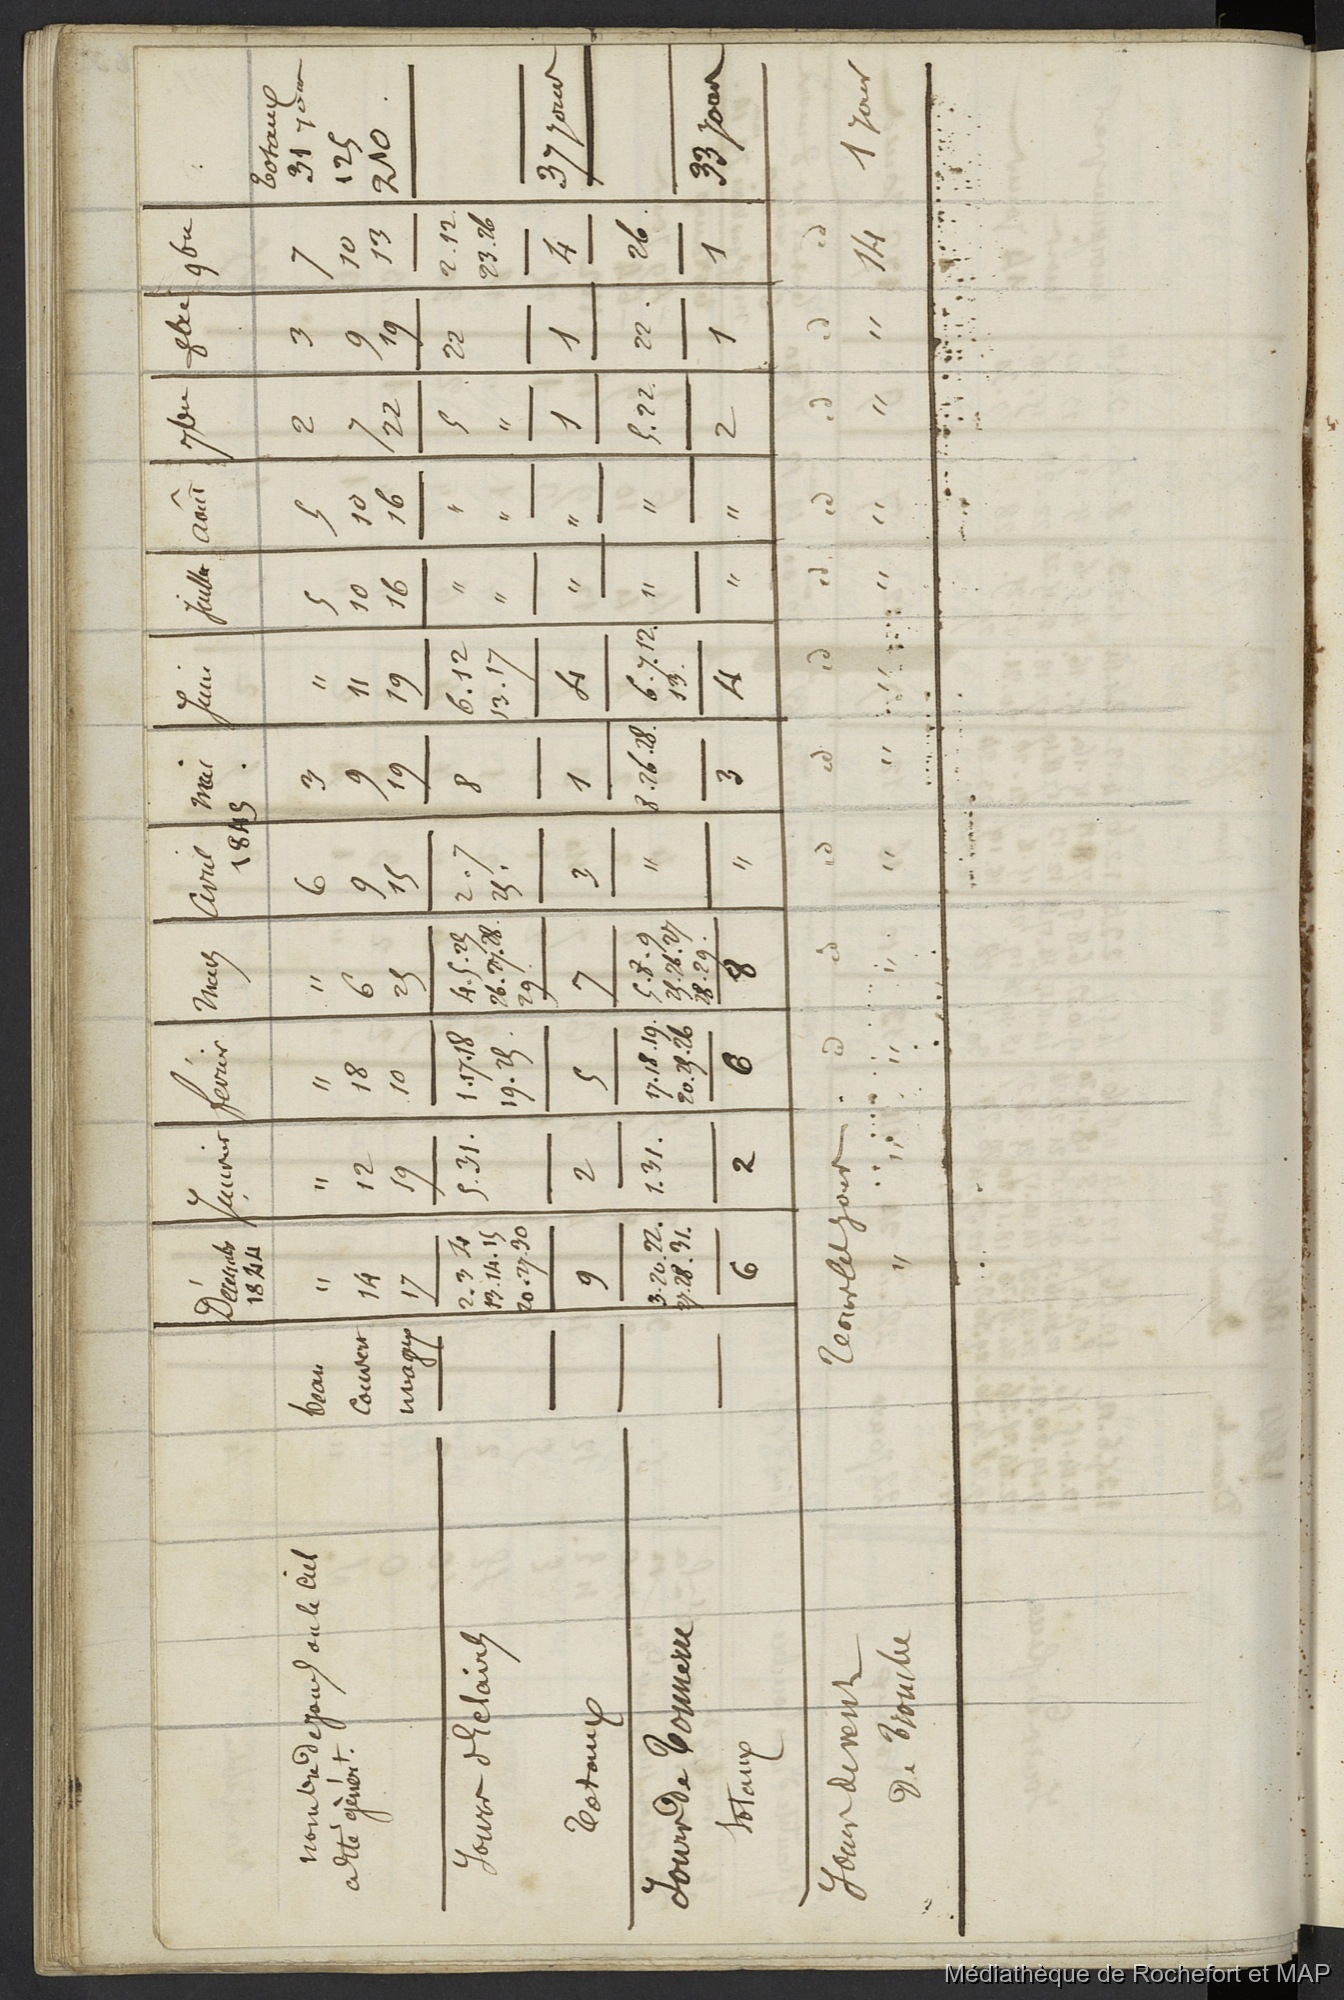 Décembre Janvier février Mars Avril Mai Juin Juillet Août 7bre 8bre 9bre Totaux
1844 1845
nombre de jours ou le ciel
a été génért.
beau " " " " 6 3 " 5 5 2 3 7 31 jours
couvert 14 12 18 6 9 9 11 10 10 7 9 10 125
nuageux 17 19 10 25 15 19 19 16 16 22 19 13 210
Jours d'Eclairs
2. 3. 4 5. 31. 1. 17. 18 4. 5. 25 2. 7 8 6. 12 " " 5 22 2. 12.
13. 14. 15 19. 25. 26. 27. 28. 25. 13. 17 " " " 23. 26
20. 27. 30 29
Totaux 9 2 5 7 3 1 4 " " 1 1 4 37 jours
Jours de Tonnerre
3. 20. 22. 1. 31. 17. 18. 19. 5. 8. 9 " 8. 26. 28. 6. 7. 12. " " 5. 22. 22. 26.
27. 28. 31. 20. 25. 26 25. 26. 27 13.
28. 29.
totaux 6 2 6 8 " 3 4 " " 2 1 1 33 jours
Jours de vent Tous les jours id id id id id id id id id id
De Trombe " " " " " " " " " " " 14 1 jour
Médiathèque de Rochefort et MAP